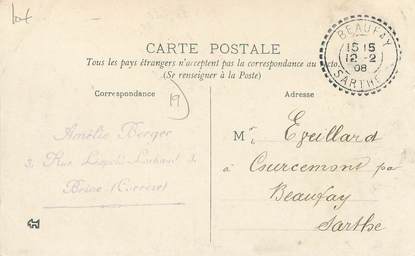 BEAUFAY
15 15
12 - 2
08
SARTHE
CARTE POSTALE
Tous les pays étrangers n'acceptent pas la correspondance au
(Se renseigner à la Poste)
Correspondance
Adresse
19
Amélie Berger
3, Rue Léopold 3
Brive (Corrèze)
Mr Eveillard
à Courcemont par
Beaufay
Sarthe